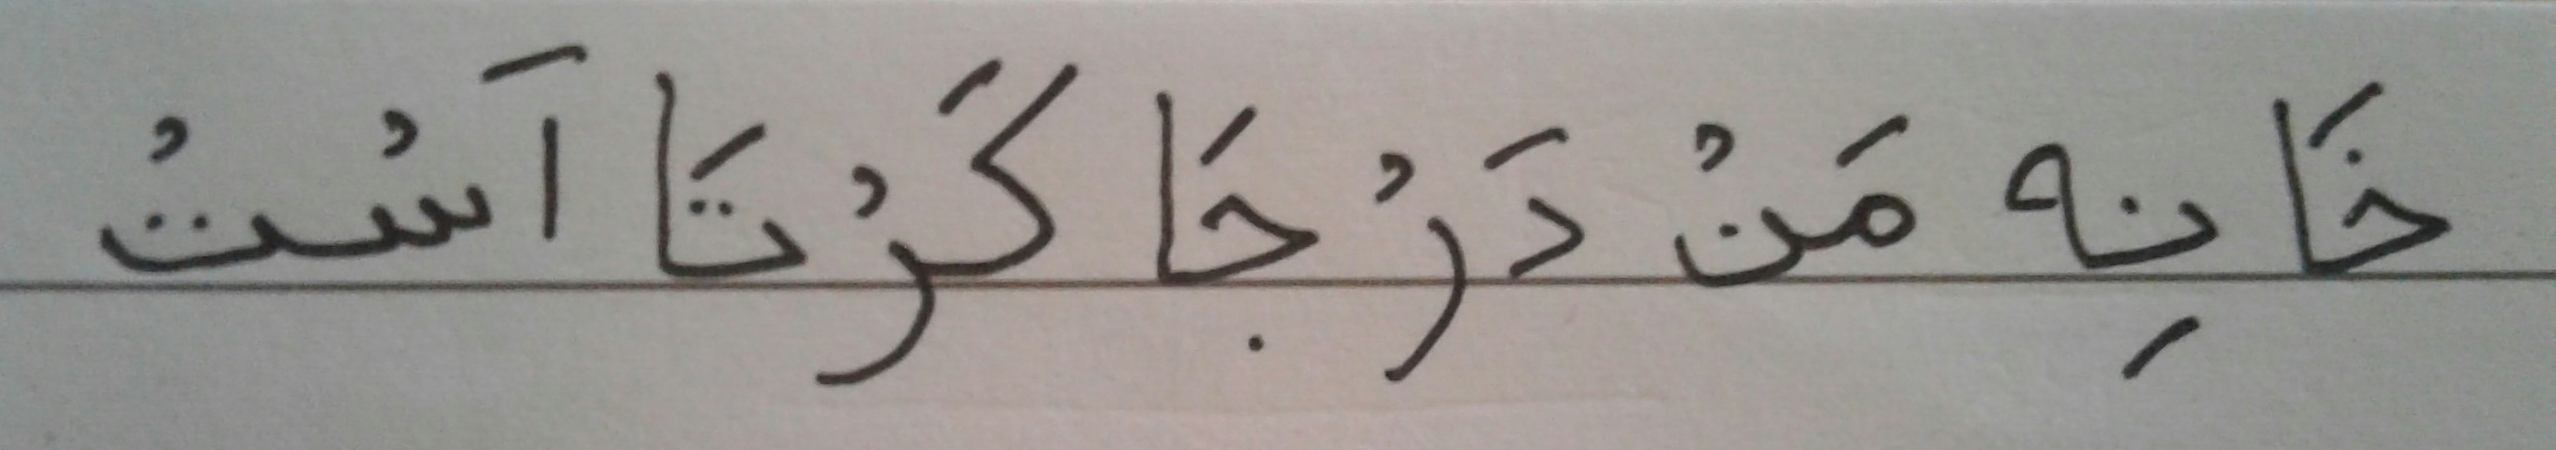 خَانِه مَنْ دَرْ جَا كَرْتَا اَسْتْ